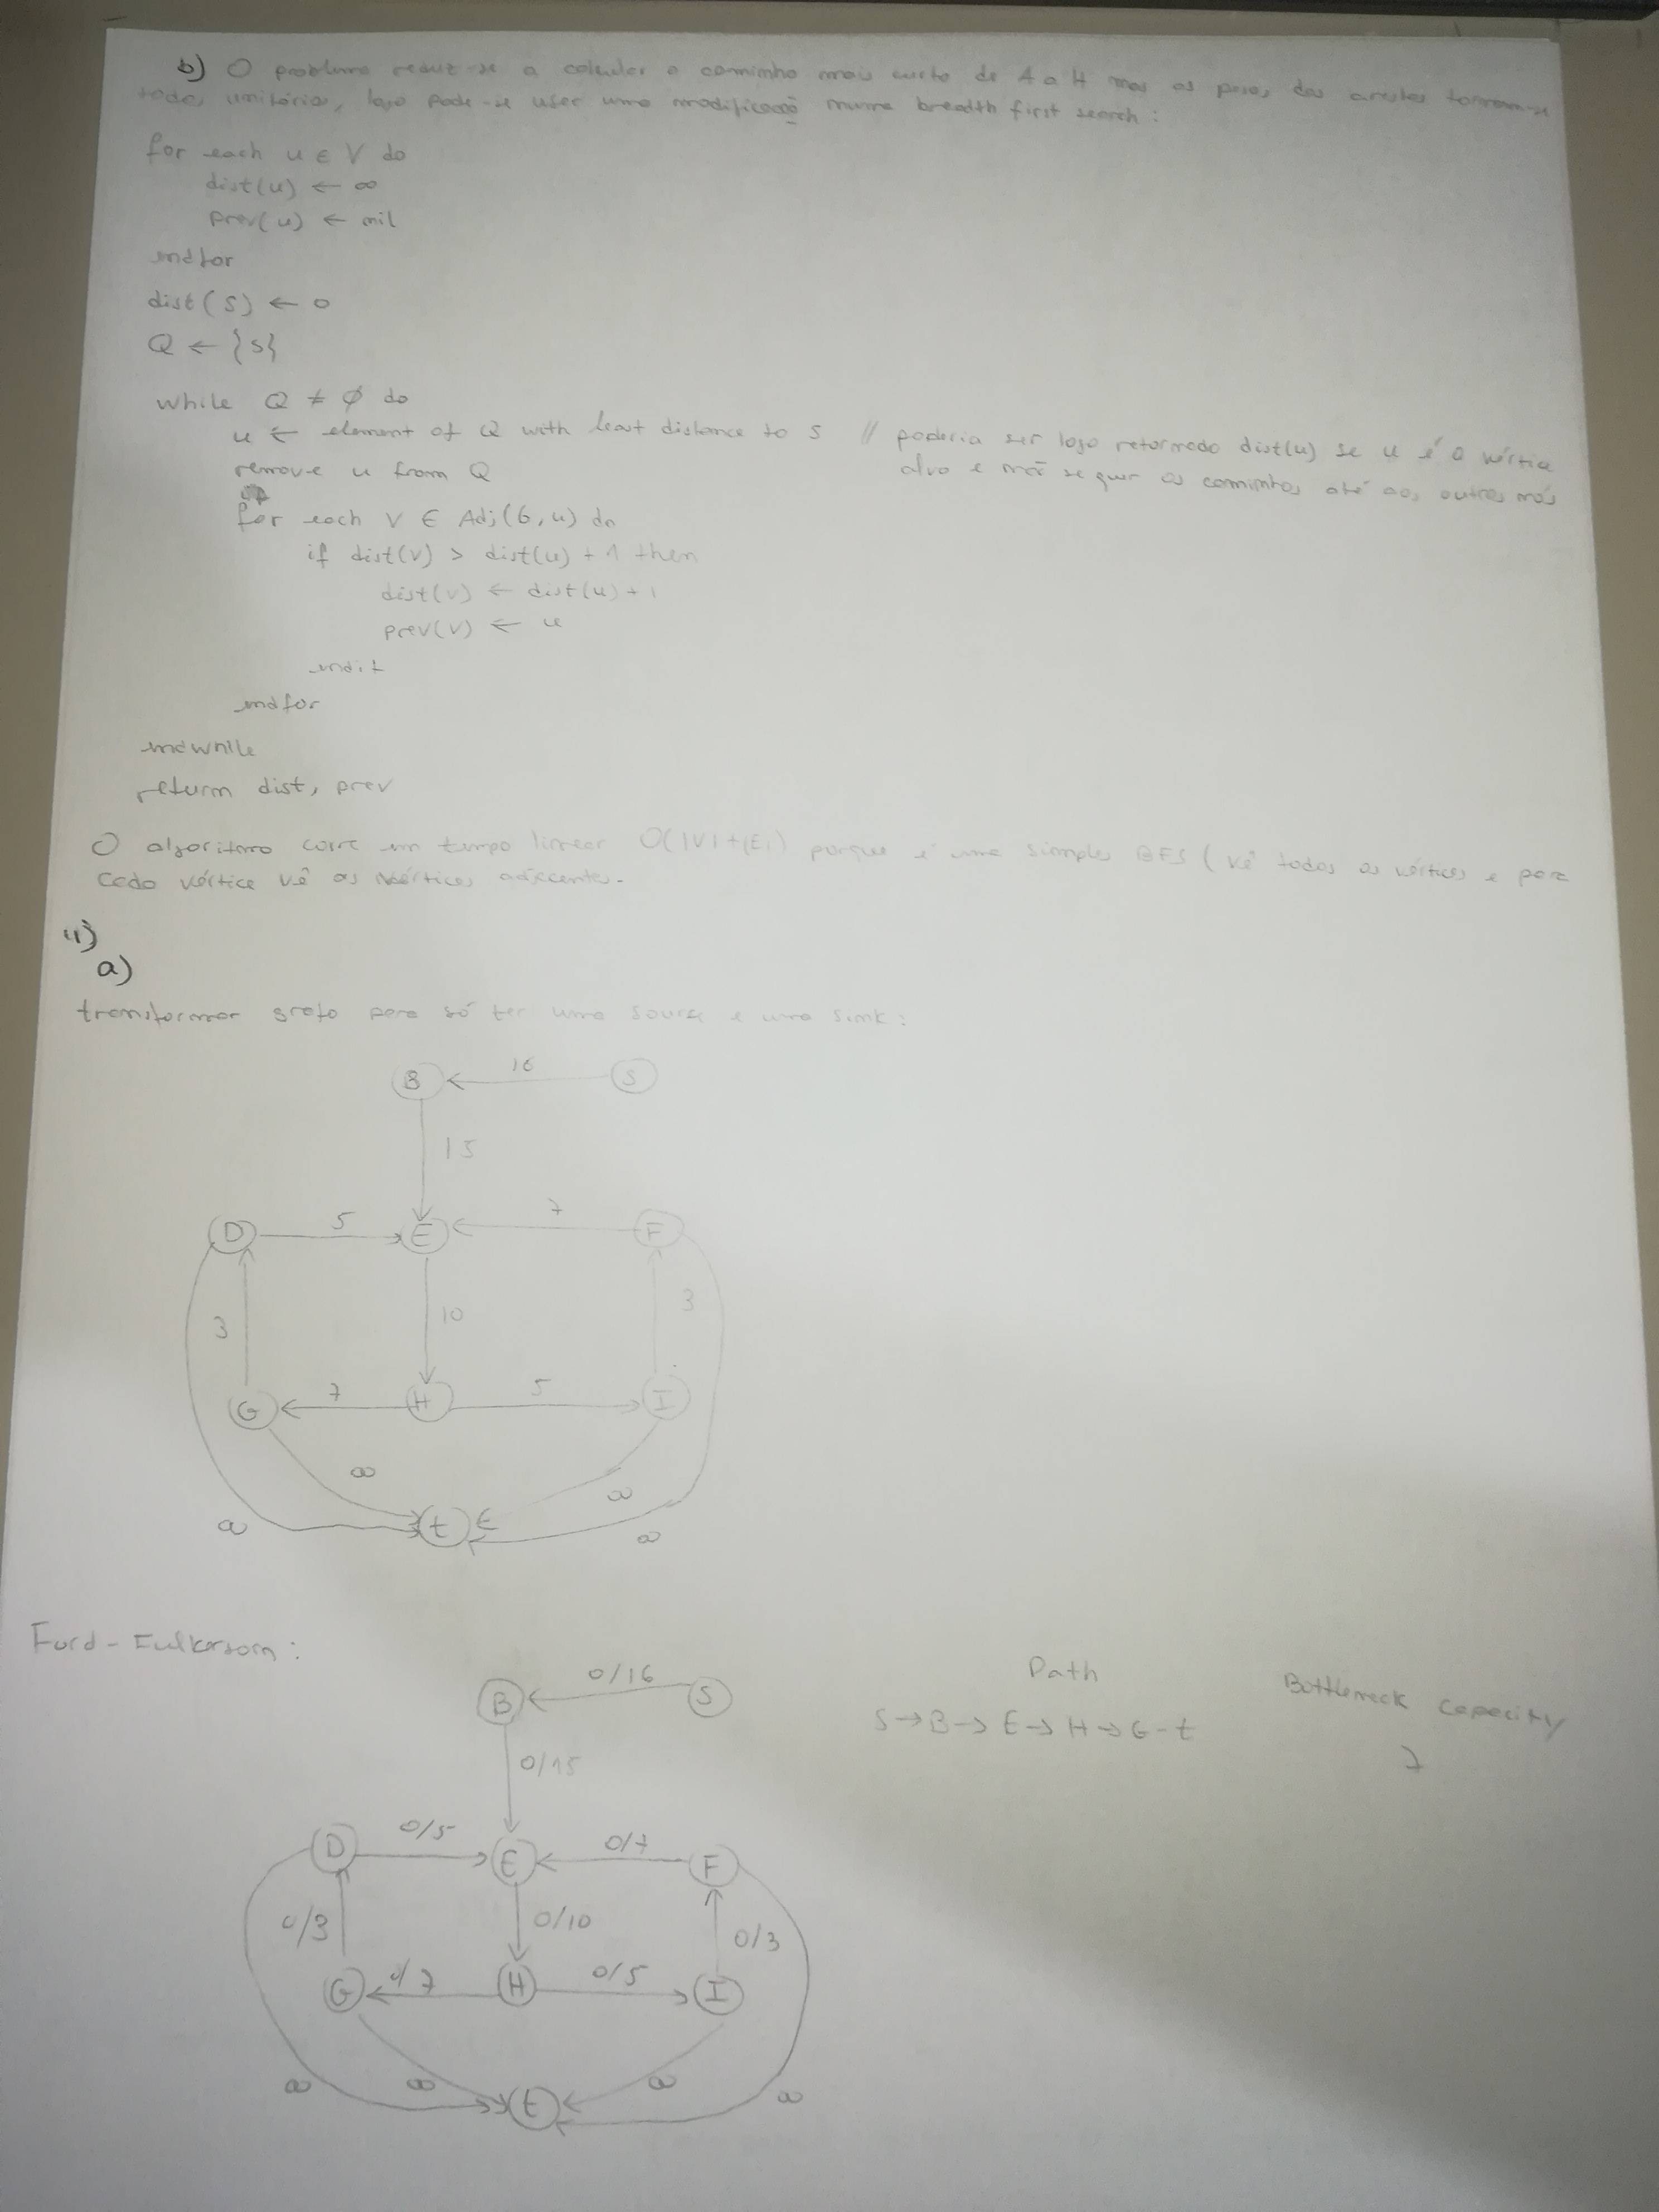 b) O problema reduz-se a calcular o caminho mais curto de A a H mas os pesos das arestas tornam-se
todos unitários, logo pode-se usar uma modificação numa breadth first search:
for each u ∈ V do
dist(u) ← ∞
prev(u) ← nil
endfor
dist(S) ← 0
Q ← {S}
while Q ≠ ∅ do
u ← element of Q with least distance to S // poderia ser logo retornado dist(u) se u é o vértice
alvo e não se quer os caminhos até aos outros nós
remove u from Q
for each v ∈ Adj(G, u) do
if dist(v) > dist(u) + 1 then
dist(v) ← dist(u) + 1
prev(v) ← u
endif
endfor
endwhile
return dist, prev
O algoritmo corre em tempo linear O(|V|+|E|) porque é uma simples BFS (vê todos os vértices e para
cada vértice vê os vértices adjacentes.
4)
a)
transformar grafo para só ter uma source e uma sink:
B 16 S
15
D 5 E 7 F
3 10 3
G 7 H 5 I
∞ ∞
∞ t ∞
Ford-Fulkerson:
Path Bottleneck capacity
B 0/16 S
S→B→E→H→G-t 7
0/15
D 0/5 E 0/7 F
0/3 0/10 0/3
G 0/7 H 0/5 I
∞ ∞ ∞ ∞
t